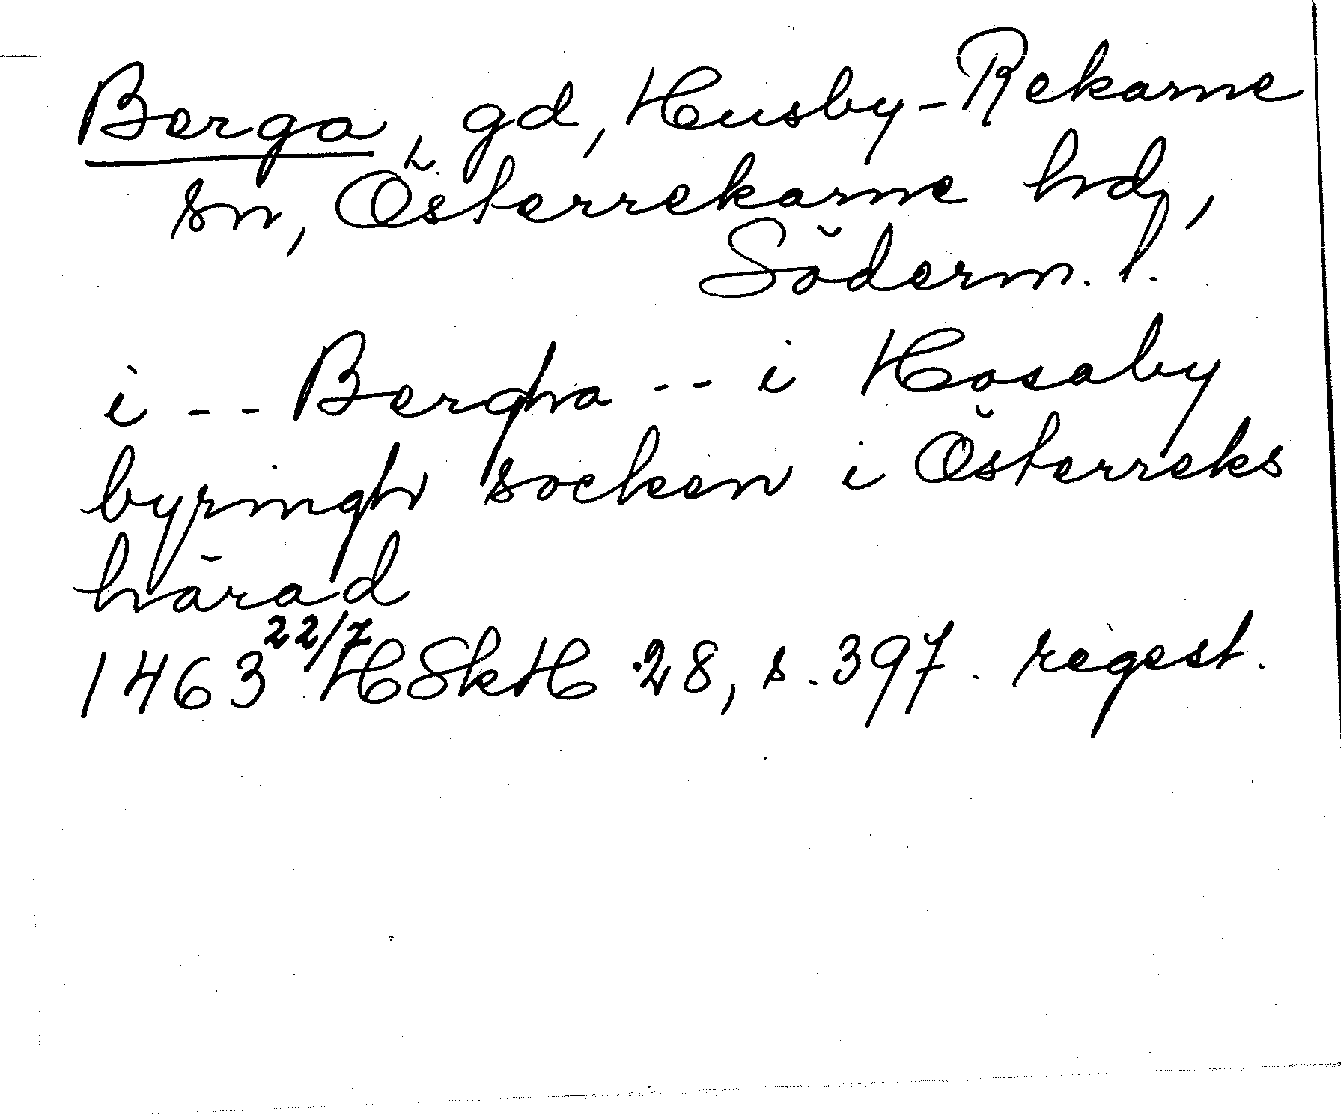 Berga, gd, Husby-Rekarne
sn, Österrekarne hd,
Söderm. l.
i -- Bergha -- i Hosaby
byringh socken i Österreks
härad
1463 22/7 HSkH 28, s. 397. regest.